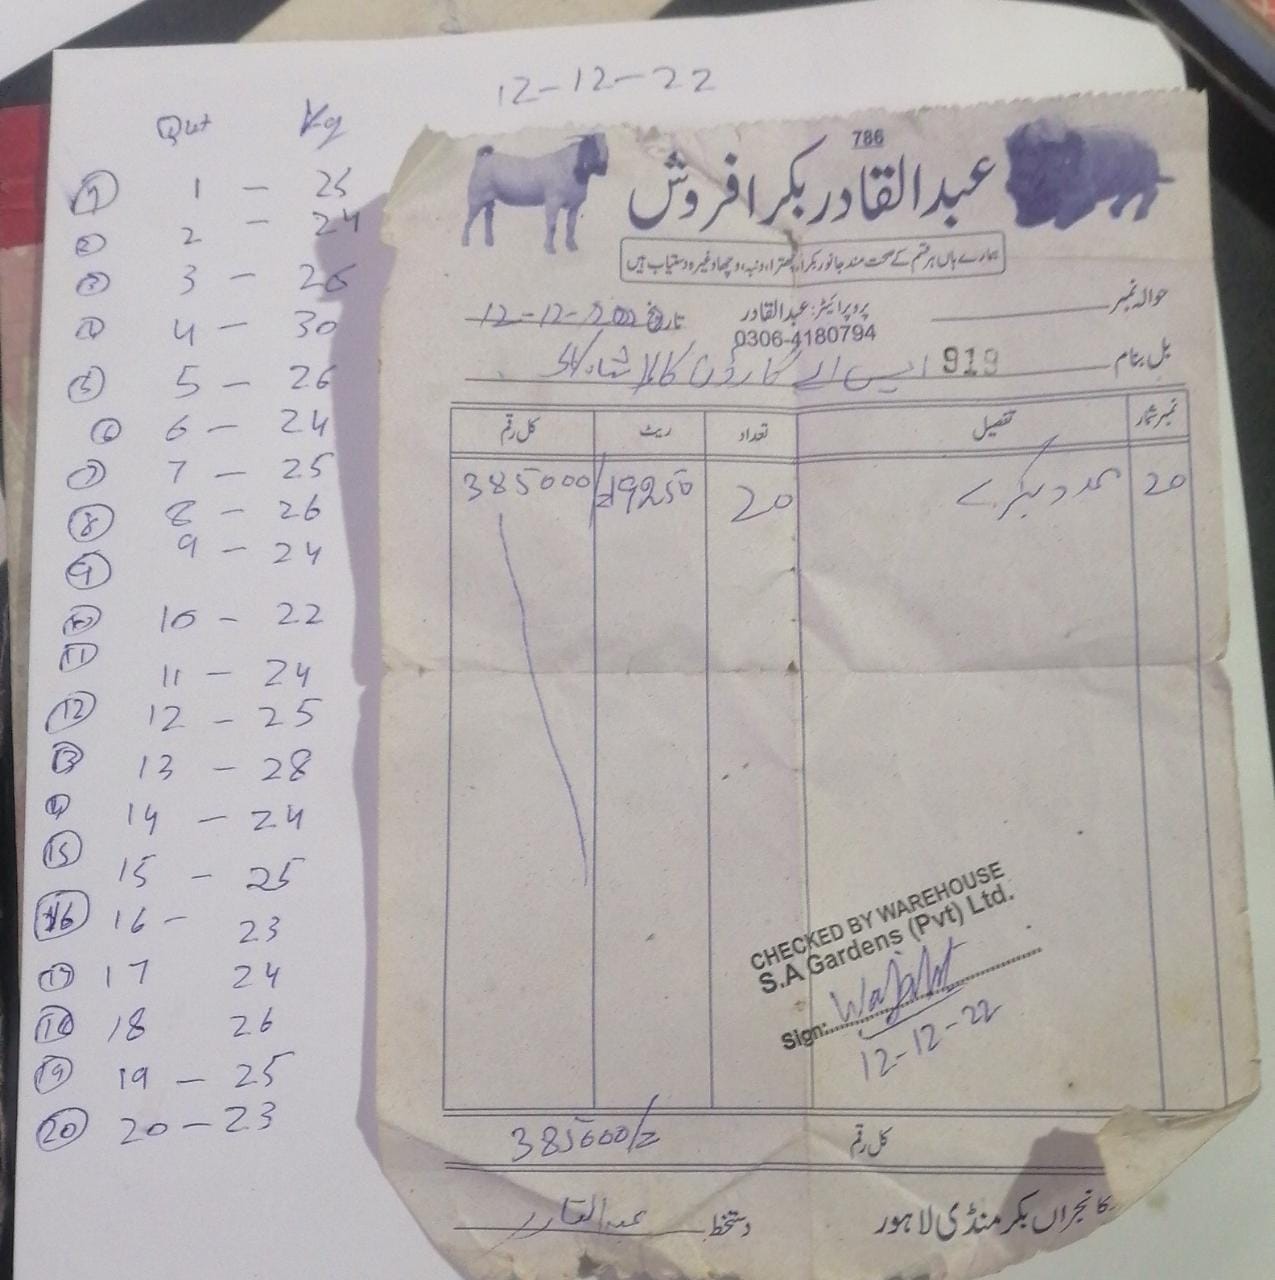 12-12-22
Qut Kg
1 1 - 25
2 2 - 24
3 3 - 26
4 4 - 30
5 5 - 26
6 6 - 24
7 7 - 25
8 8 - 26
9 9 - 24
10 10 - 22
11 11 - 24
12 12 - 25
13 13 - 28
14 14 - 24
15 15 - 25
16 16 - 23
17 17 24
18 18 26
19 19 - 25
20 20 - 23
786
عبدالقادر بکرا فروش
ہمارے ہاں ہر قسم کے صحت مند جانور بکرا، چھترا، دنبہ، وچھا وغیرہ دستیاب ہیں
حوالہ نمبر
پروپرائیٹر: عبدالقادر
تاریخ 12-12-2022
0306-4180794
بل بنام 919 ایس اے گارڈن کالا شاہ کاکو
نمبر شمار تفصیل تعداد ریٹ کل رقم
20 عدد بکرے 20 19250 385000/=
CHECKED BY WAREHOUSE
S.A Gardens (Pvt) Ltd.
Sign: Wajahat
12-12-22
کل رقم 385000/=
کانجراں بکر منڈی لاہور
دستخط عبدالقادر